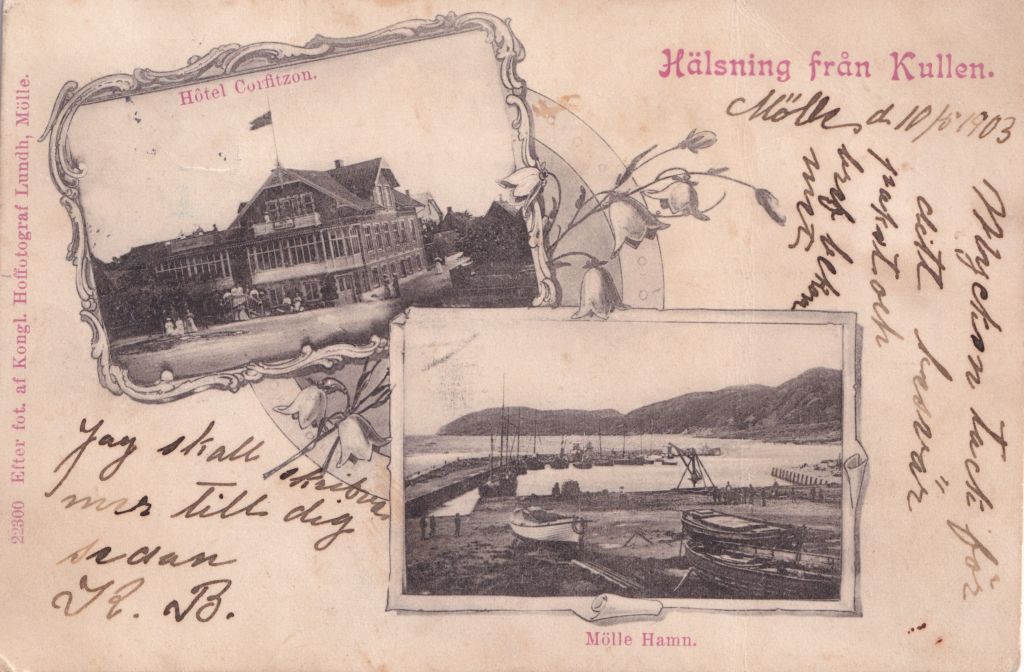 Hälsning från Kullen.
Hôtel Corfitzon.
Mölle d. 10/5 1903
Mycken tack för
ditt
och
Jag skall skrifva
mer till dig
sedan
K. B.
Mölle Hamn.
22300 Efter fot. af Kongl. Hoffotograf Lundh, Mölle.